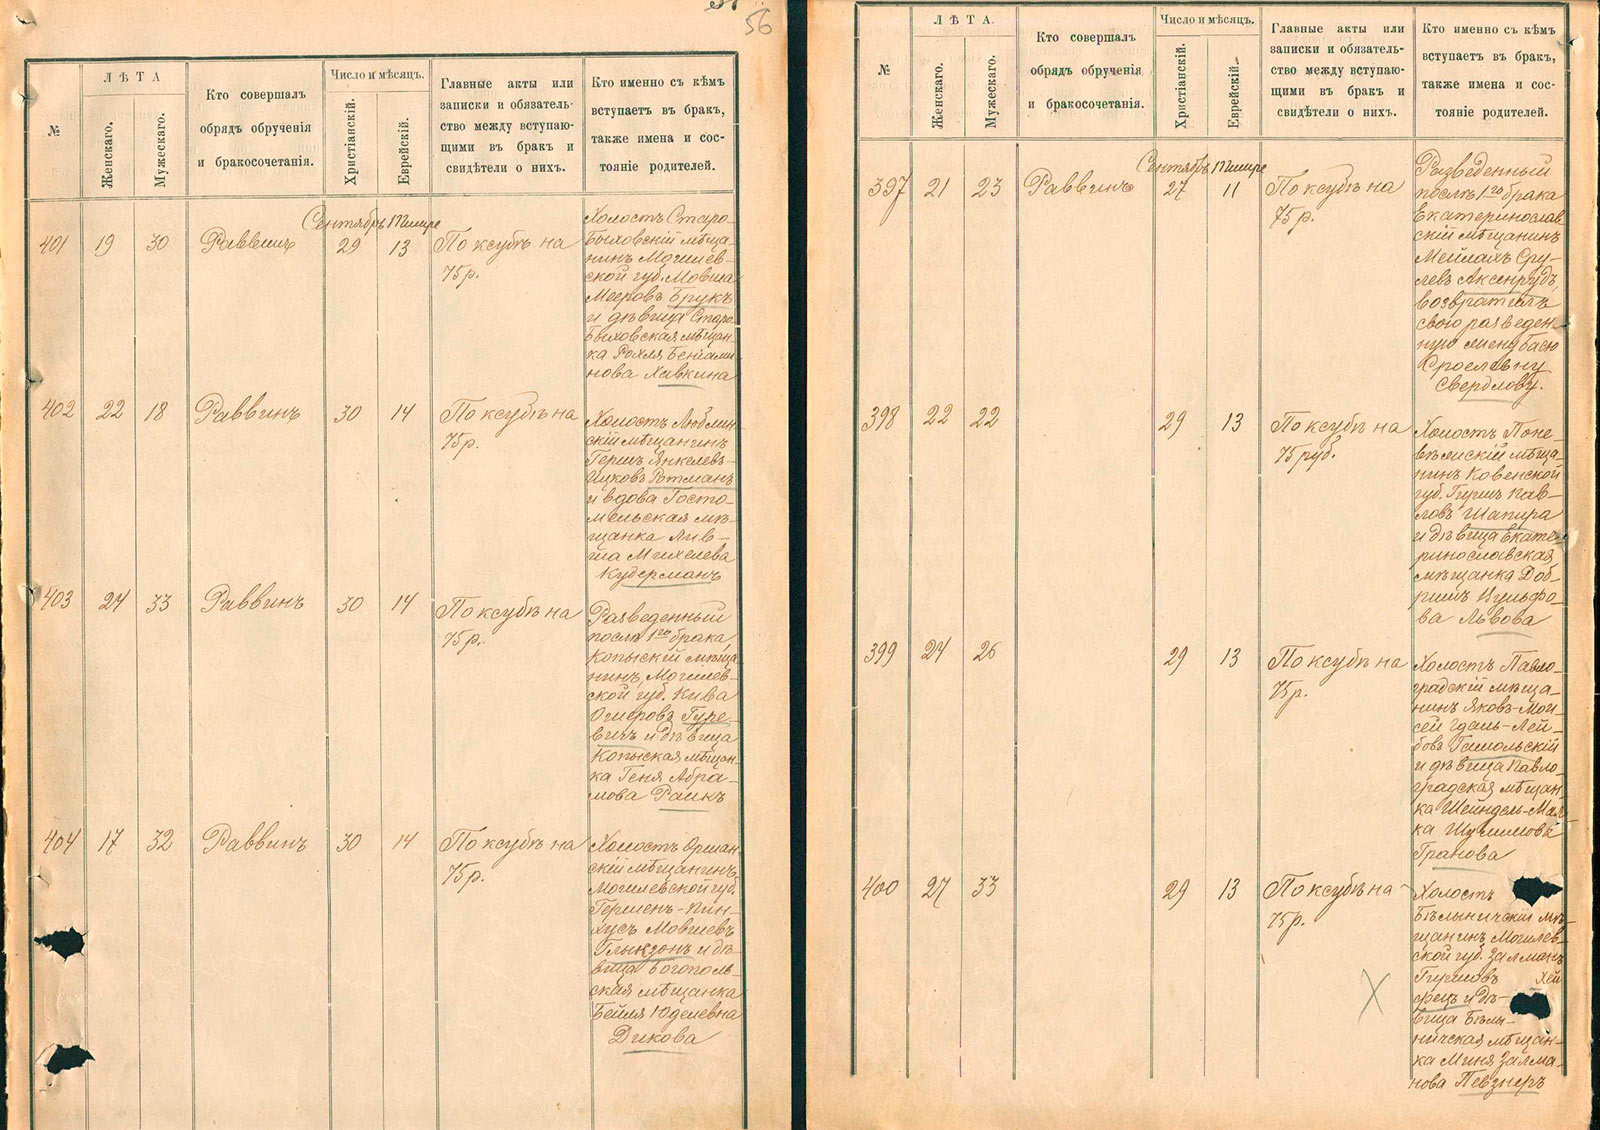 56
№
ЛѢТА
Женскаго.
Мужескаго.
Кто совершалъ
обрядъ обрученія
и бракосочетанія.
Число и мѣсяцъ.
Христіанскій.
Еврейскій.
Главные акты или
записки и обязатель-
ство между вступаю-
щими въ бракъ и
свидѣтели о нихъ.
Кто именно съ кѣмъ
вступаетъ въ бракъ,
также имена и сос-
тояніе родителей.
Сентябрь Тишре
401 19 30 Раввинъ 29 13 По ксубѣ на
75 р.
Холостъ Старо-
Быховскій мѣща-
нинъ Могилев-
ской губ. Мовша
Мееровъ Брукъ
и дѣвица Старо
Быховская мѣщан-
ка Рохля Беніами-
нова Хавкина
402 22 18 Раввинъ 30 14 По ксубѣ на
75 р.
Холостъ Люблин-
скій мѣщанинъ
Гершъ Янкелевъ-
Ицковъ Ротманъ
и вдова Госто-
мельская мѣ-
щанка
Михелева
Кудерманъ
403 24 33 Раввинъ 30 14 По ксубѣ на
75 р.
Разведенный
послѣ 1го брака,
Копыскій мѣща
нинъ, Могилев-
ской губ. Кива
Ошеровъ Гуре
вичъ и дѣвица
Копыская мѣщан-
ка Геня Абра-
мова Раикъ
404 17 32 Раввинъ 30 14 По ксубѣ на
75 р.
Холостъ Оршан-
скій мѣщанинъ
Могилевской губ.
Гершенъ-Пин-
хусъ Мовшевъ
и дѣ-
вица Богополь-
ская мѣщанка
Бейля Юделевна
Дикова
№
ЛѢТА.
Женскаго.
Мужескаго.
Кто совершалъ
обрядъ обрученія
и бракосочетанія.
Число и мѣсяцъ.
Христіанскій.
Еврейскій.
Главные акты или
записки и обязатель-
ство между вступаю-
щими въ бракъ и
свидѣтели о нихъ.
Кто именно съ кѣмъ
вступаетъ въ бракъ,
также имена и сос-
тояніе родителей.
Сентябрь Тишре
397 21 23 Раввинъ 27 11 По ксубѣ на
75 р.
Разведенный
послѣ 1го брака
Екатеринослав
скій мѣщанинъ
Мейлахъ Сру-
левъ Аксенрудъ,
возвратилъ
свою разведен-
ную жену Басю
Сроелевну
Свердлову.
398 22 22 29 13 По ксубѣ на
75 руб.
Холостъ Поне-
вѣжскій мѣща-
нинъ Ковенской
губ. Гиршъ Кав-
ловъ Шапира
и дѣвица Екате-
ринославская
мѣщанка Доб-
ришъ Вульфо-
ва Львова
399 24 26 29 13 По ксубѣ на
75 р.
Холостъ Павло-
градскій мѣща-
нинъ Яковъ-Мои-
сей Гдаль-Лей-
бовъ Гомольскій
и дѣвица Павло-
градская мѣщан-
ка Шейндель-Мал-
ка Шулимова
Гранова
400 27 33 29 13 По ксубѣ на-
75 р.
Холостъ
Бѣлыничскій мѣ-
щанинъ Могилев-
ской губ. Залманъ
Гиршовъ Хей
фецъ и дѣ-
вица Бѣлы-
ничская мѣщан-
ка Миня Залма-
нова Певзнеръ